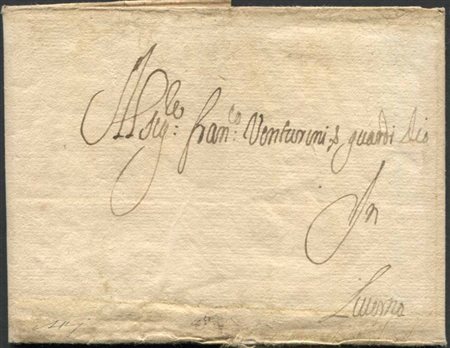 Al Sig:le Fran:co Venturini, guardi Dio
In
Livorno